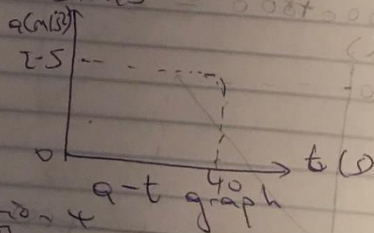 a(m/s²)
2-5
0
40
t(s)
a-t graph